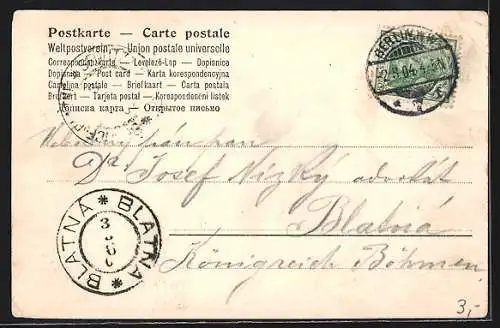 Postkarte — Carte postale
Weltpostverein, Union postale universelle
Correspondenzkarte — Levelező-Lap — Dopisnice
Dopisnica — Post card — Karta korespondencyjna
Cartolina postale — Briefkaart — Carta postala
Brefkort — Tarjeta postal — Korespondeční lístek
Почтовая карта — Открытое письмо
BERLIN
5.9.04.
Dr Josef Nizký advokát
Blatná
Königreich Böhmen.
BLATNA * BLATNA *
3,-